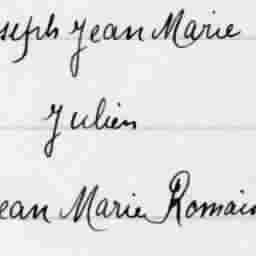 seph Jean Marie
Julien
ean Marie Romain